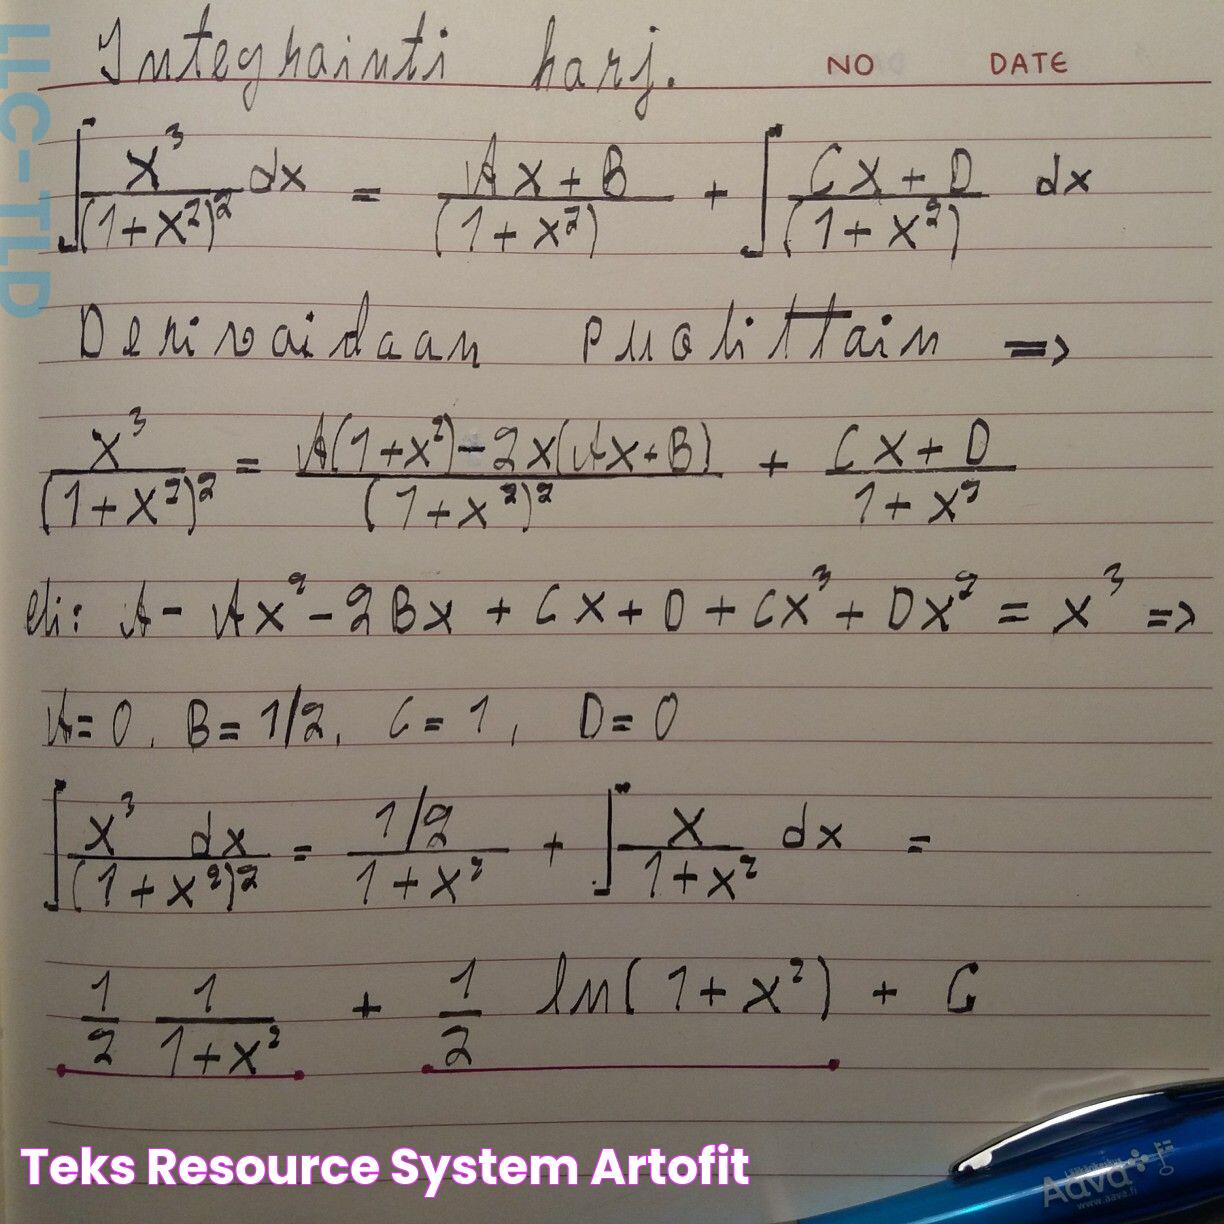 Integrainti harj.
NO DATE
∫ x³/(1+x²)² dx = (Ax+B)/(1+x²) + ∫ (Cx+D)/(1+x²) dx
Derivoidaan puolittain =>
x³/(1+x²)² = (A(1+x²)-2x(Ax+B))/(1+x²)² + (Cx+D)/(1+x²)
eli: A - Ax² - 2Bx + Cx + D + Cx³ + Dx² = x³ =>
A=0, B=1/2, C=1, D=0
∫ x³ dx/(1+x²)² = (1/2)/(1+x²) + ∫ x/(1+x²) dx =
1/2 1/(1+x²) + 1/2 ln(1+x²) + C
LLC-TLD
Teks Resource System Artofit
Lääkärikeskus
Aava
www.aava.fi